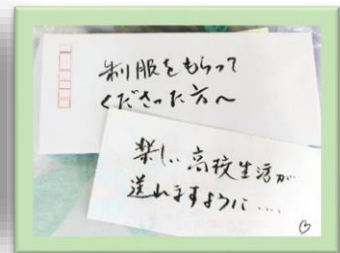 制服をもらって
くださった方へ
楽しい高校生活が
送れますように....